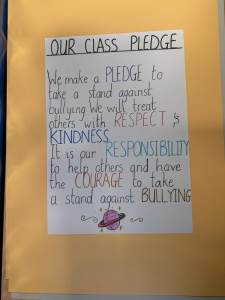 OUR CLASS PLEDGE
We make a PLEDGE to
take a stand against
bullying. We will treat
others with RESPECT &
KINDNESS
It is our RESPONSIBILITY
to help others and have
the COURAGE to take
a stand against BULLYING